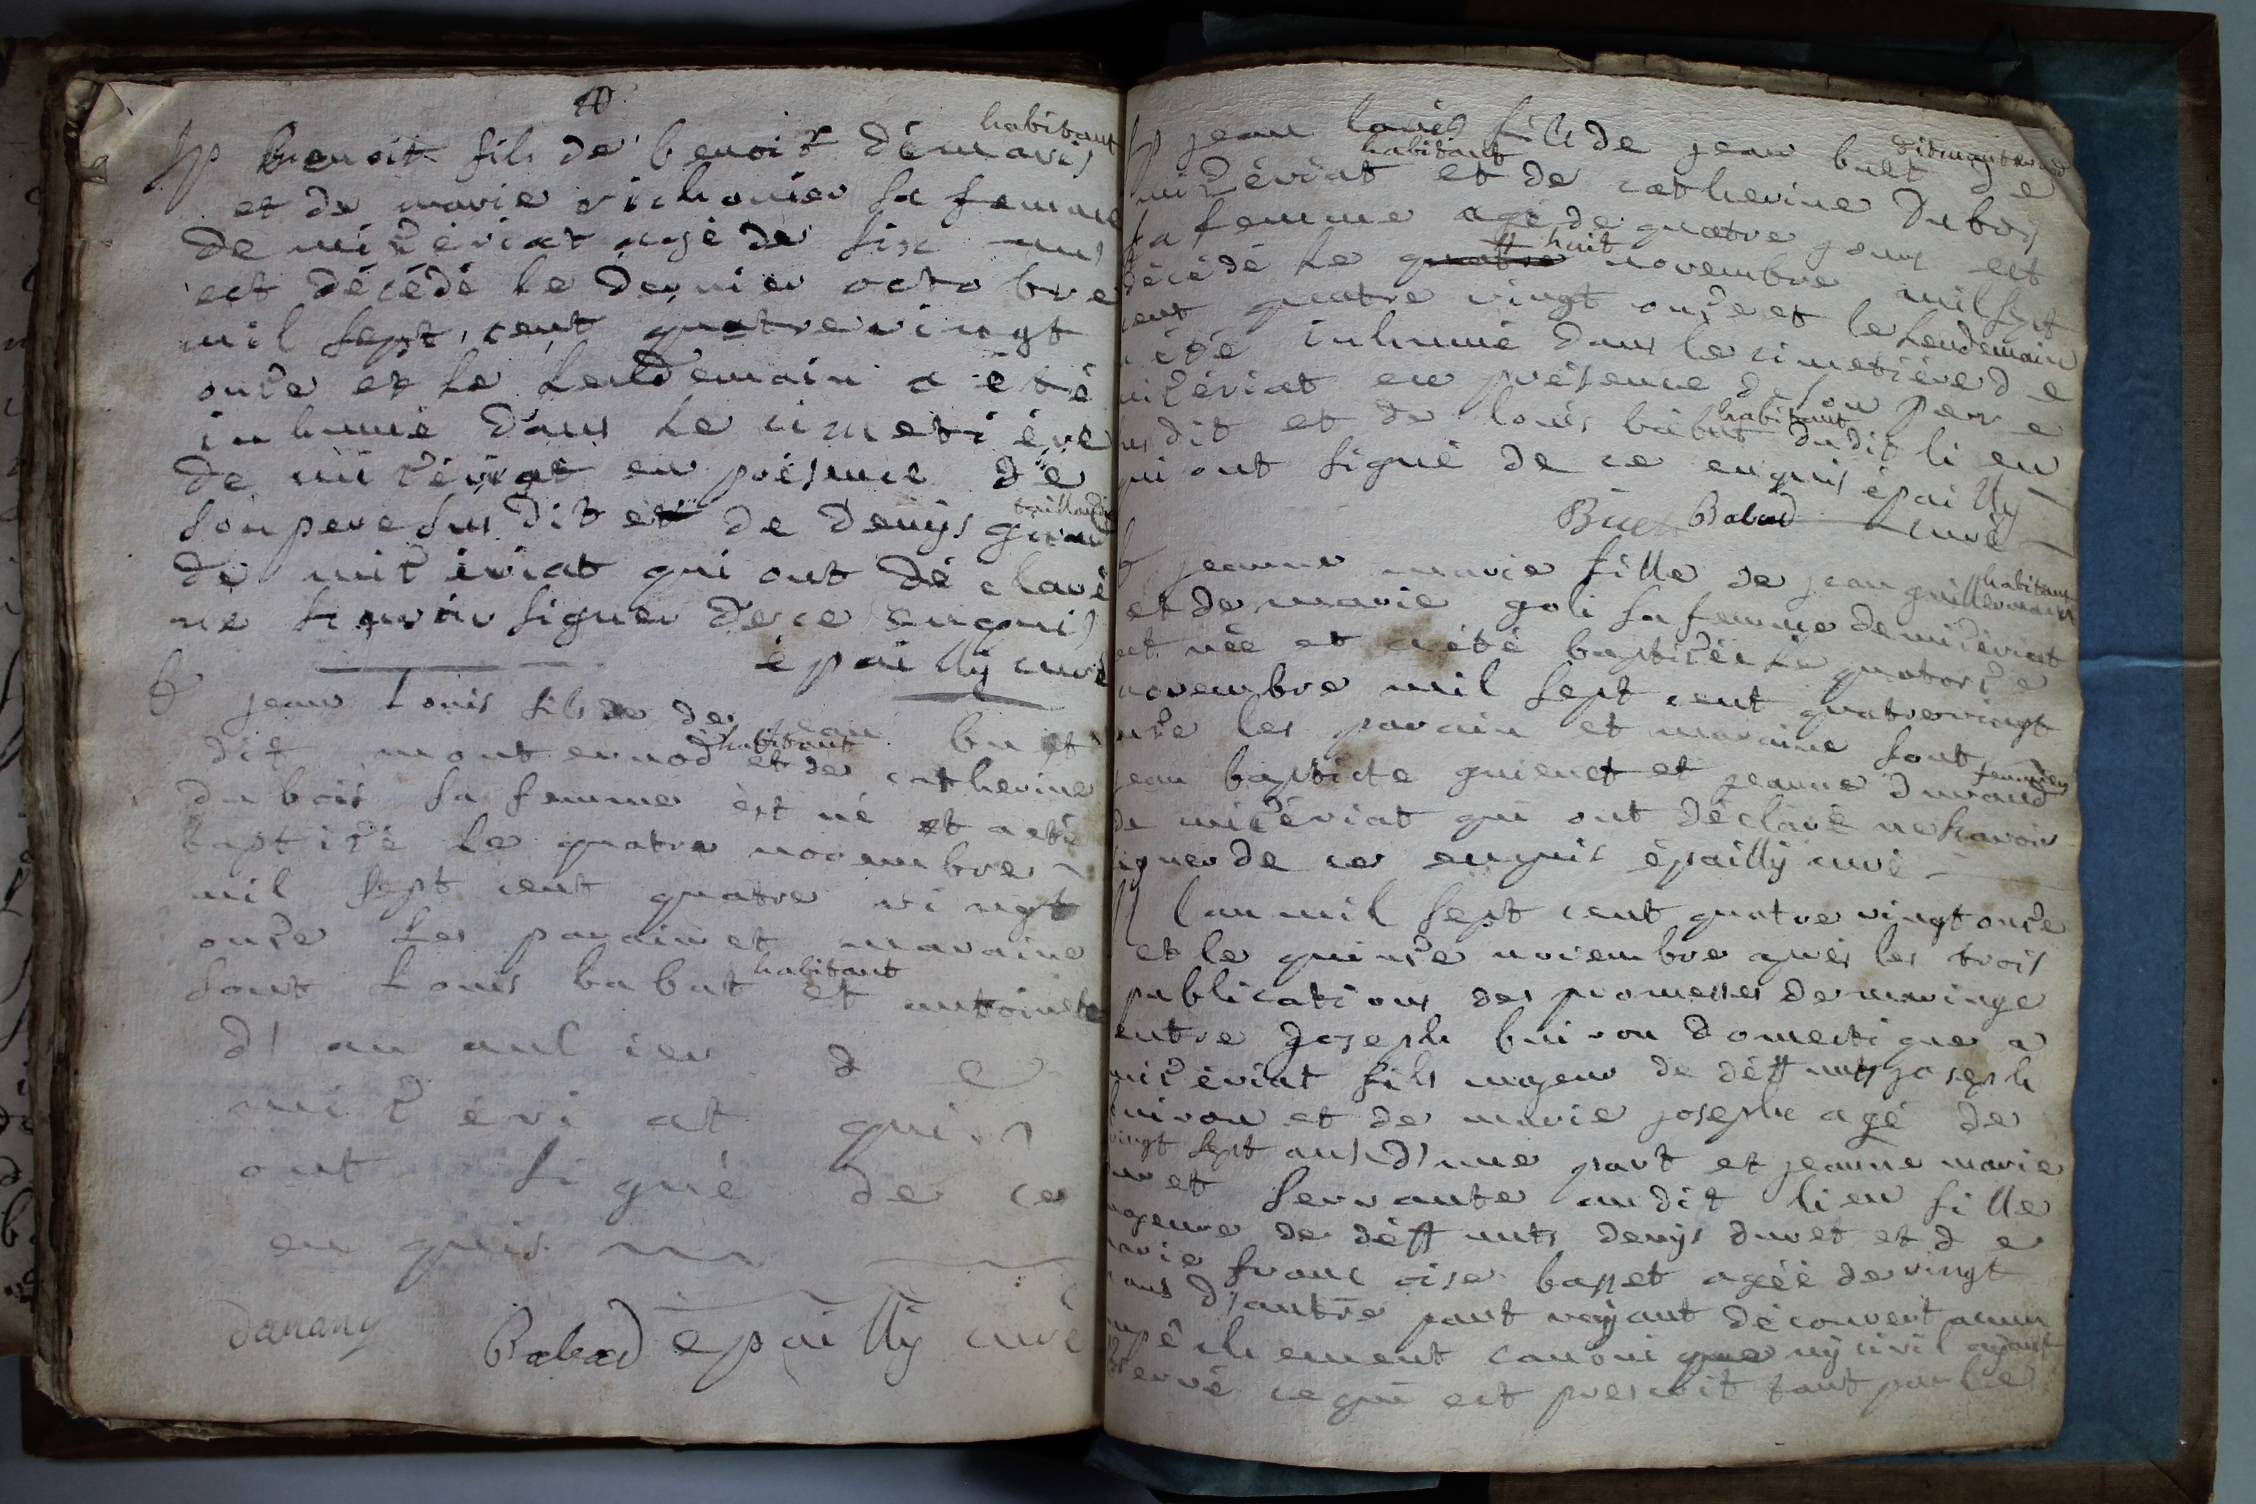 habitant
benoit fils de benoit démaris
et de marie richonier sa femme
de mizériat agé de six ans
est décédé le dernier octobre
mil sept cent quatre vingt
onze et le lendemain a été
inhumé dans le cimetière
de mizériat en présence de
son pere susdit et de denÿs
de mizériat qui ont déclaré
ne scavoir signer de ce enquis
épaillÿ curé
jean Louis fils de jean buet
dit monternod habitant et de catherine
dubois sa femme est né et a été
baptizé le quatre novembre
mil sept cent quatre vingt
onze les parain et maraine
sont Louis babat habitant et antoinette
de
mizériat qui
ont signé de ce
enquis
danany Babad épaillÿ curé
jean louis fils de jean buet dit monternod de
mizériat habitant et de catherine dubois
sa femme agé de quatre jours est
décédé le huit novembre mil sept
cent quatre vingt onze et le lendemain
a été inhumé dans le cimetière de
mizériat en présence de son pere
susdit et de louis babat habitant dudit lieu
qui ont signé de ce enquis épaillÿ
Buet Babad curé
jeanne marie fille de jean guillermain habitant
et de marie goli sa femme de mizériat
est née et a été baptizée le quatorze
novembre mil sept cent quatrevingt
onze les parain et maraine sont
jean baptiste guienet et jeanne durand
de mizériat qui ont déclaré ne scavoir
signer de ce enquis épaillÿ curé
lan mil sept cent quatre vingt onze
et le quinze noiembre après les trois
publications des promesses de mariage
entre joseph buiron domestique a
mizériat fils majeur de déffunts joseph
buiron et de marie josephe agé de
vingt sept ans d'une part et jeanne marie
duret servante audit lieu fille
majeure de déffunts denÿs duret et de
marie francoise basset agéé de vingt
ans d'autre part nayant découvert aucun
empéchement canonique nÿ civil ayant
observé ce qui est prescrit tant par les